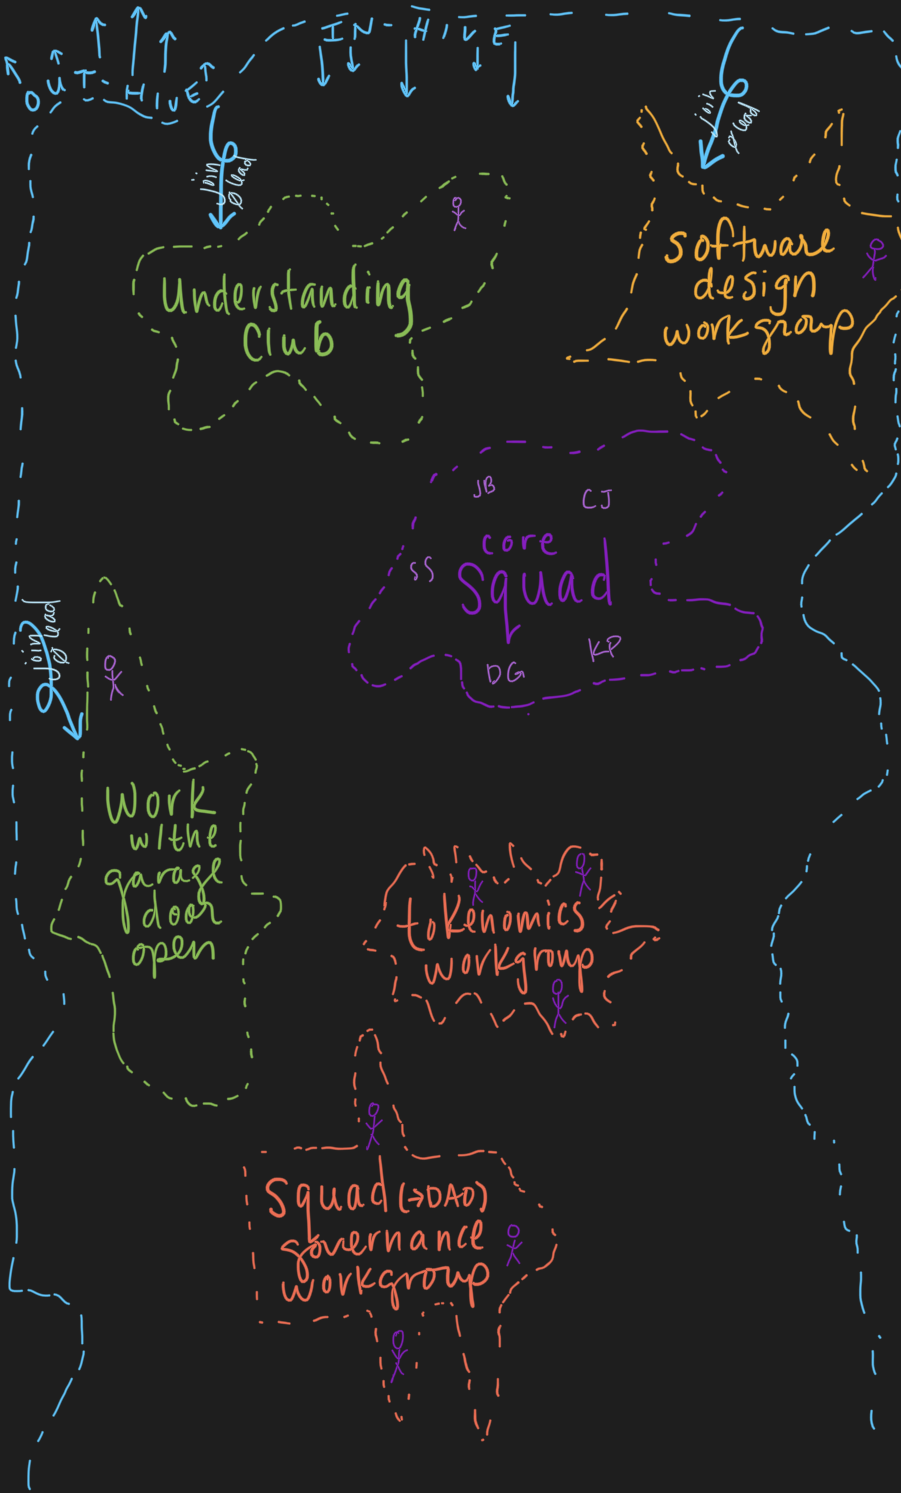 OUT-HIVE
IN-HIVE
join
& lead
join
& lead
Understanding
Club
software
design
workgroup
JB
CJ
SS
core
Squad
DG
KP
join
& lead
Work
w/the
garage
door
open
tokenomics
workgroup
Squad (→DAO)
governance
workgroup